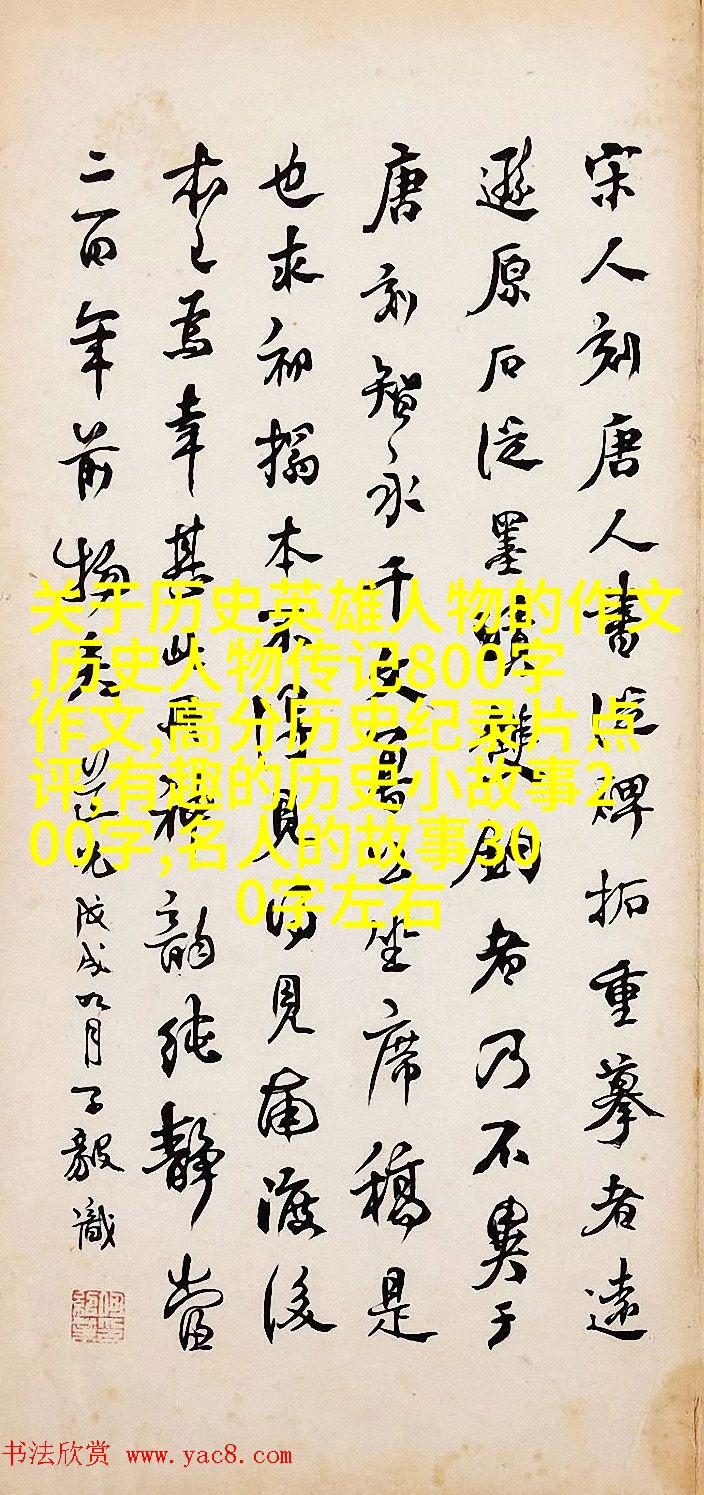 宋人刻唐人書從碑拓重摹者遠
遜原石從墨蹟雙鉤者乃不異于
唐刻智永千文魯公坐席稿是
也求初搨本不得見得見南渡後
本已為幸甚此冊神韻純靜當
二百年前物矣道光戊戌九月子毅識
关于历史英雄人物的作文
,历史人物传记800字
作文,高分历史纪录片点
评,有趣的历史小故事2
00字,名人的故事30
0字左右
书法欣赏 www.yac8.com